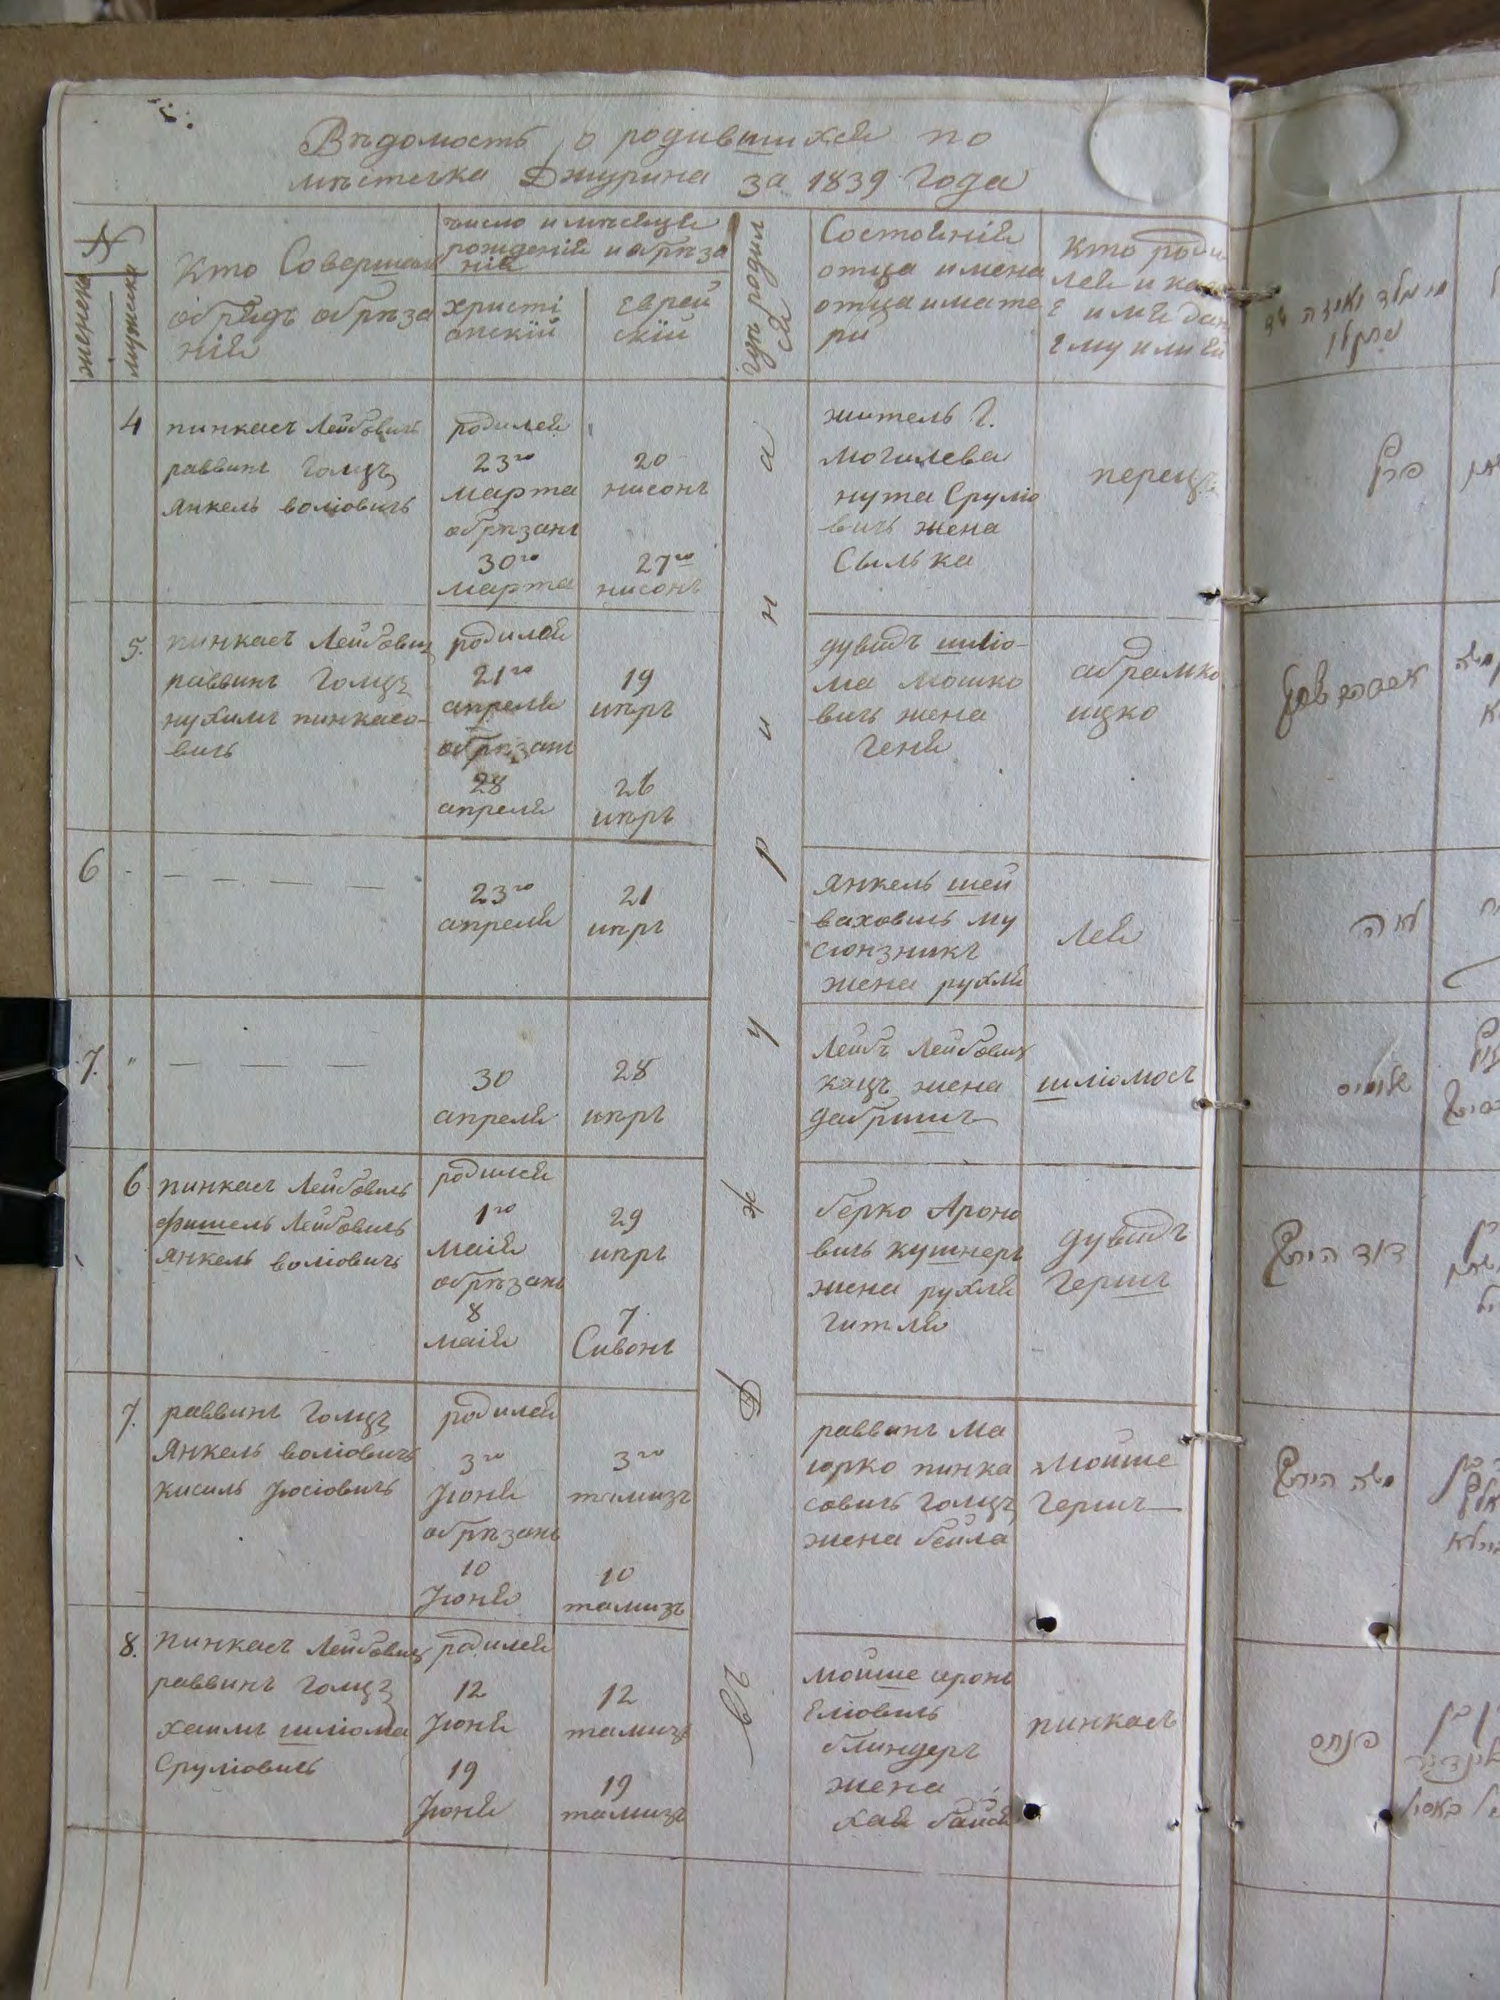 Вѣдомость о родившихся по
мѣстечка Джурина за 1839 Года
№
женска
мужеска
Кто Совершал
обрядъ обрѣза
нія
число и мѣсяцъ
рожденія и обрѣза
нія
христі
анскій
Еврей
скій
гдѣ родил
ся
Состояніе
отца имена
отца и мате
ри
Кто роди
лся и как
е имя дан
ему или ей
4
пинкасъ Лейбовичъ
раввинъ Голцъ
Янкель воліовичъ
родился
23го
марта
обрѣзанъ
30го
марта
20
нисонъ
27го
нисонъ
житель Г.
Могилева
нута Срулiо
вичъ жена
Сылька
перецъ
5.
пинкасъ Лейбович
раввинъ Голцъ
нухимъ пинкасо-
вичъ
родился
21го
апреля
обрѣзанъ
28
апреля
19
иѣръ
26
иѣръ
дувидъ шліо-
ма мошко
вичъ жена
Геня
абрамко
ицко
6
23го
апреля
21
иѣръ
Янкель шей
ваховичъ му
сіонзникъ
жена рухля
Лея
7.
30
апреля
28
иѣръ
Лейбъ Лейбович
кацъ жена
добришъ
шліомосъ
6
пинкасъ Лейбовичъ
фишель Лейбовичъ
Янкель воліовичъ
родился
1го
маія
обрѣзанъ
8
маія
29
иѣръ
7
Сивонъ
берко Ароно
вичъ кушнеръ
жена рухля
гитля
дувидъ
Гершъ
7.
раввинъ Голцъ
Янкель воліовичъ
кисиль Іосіовичъ
родился
3го
Іюня
обрѣзанъ
10
Іюня
3го
тамизъ
10
тамизъ
раввинъ Ма
іорко пинка
совичъ Голцъ
жена бейла
Мойше
Гершъ
8.
пинкасъ Лейбович
раввинъ Голцъ
хаимъ шліома
Сруліовичъ
родился
12
Іюня
19
Іюня
12
тамизъ
19
тамизъ
мойше аронъ
Еліовичъ
блиндеръ
жена
хая бася
пинкасъ
въ Джурина
פרץ
לאה
דוד הירש
משה הירש
פנחס